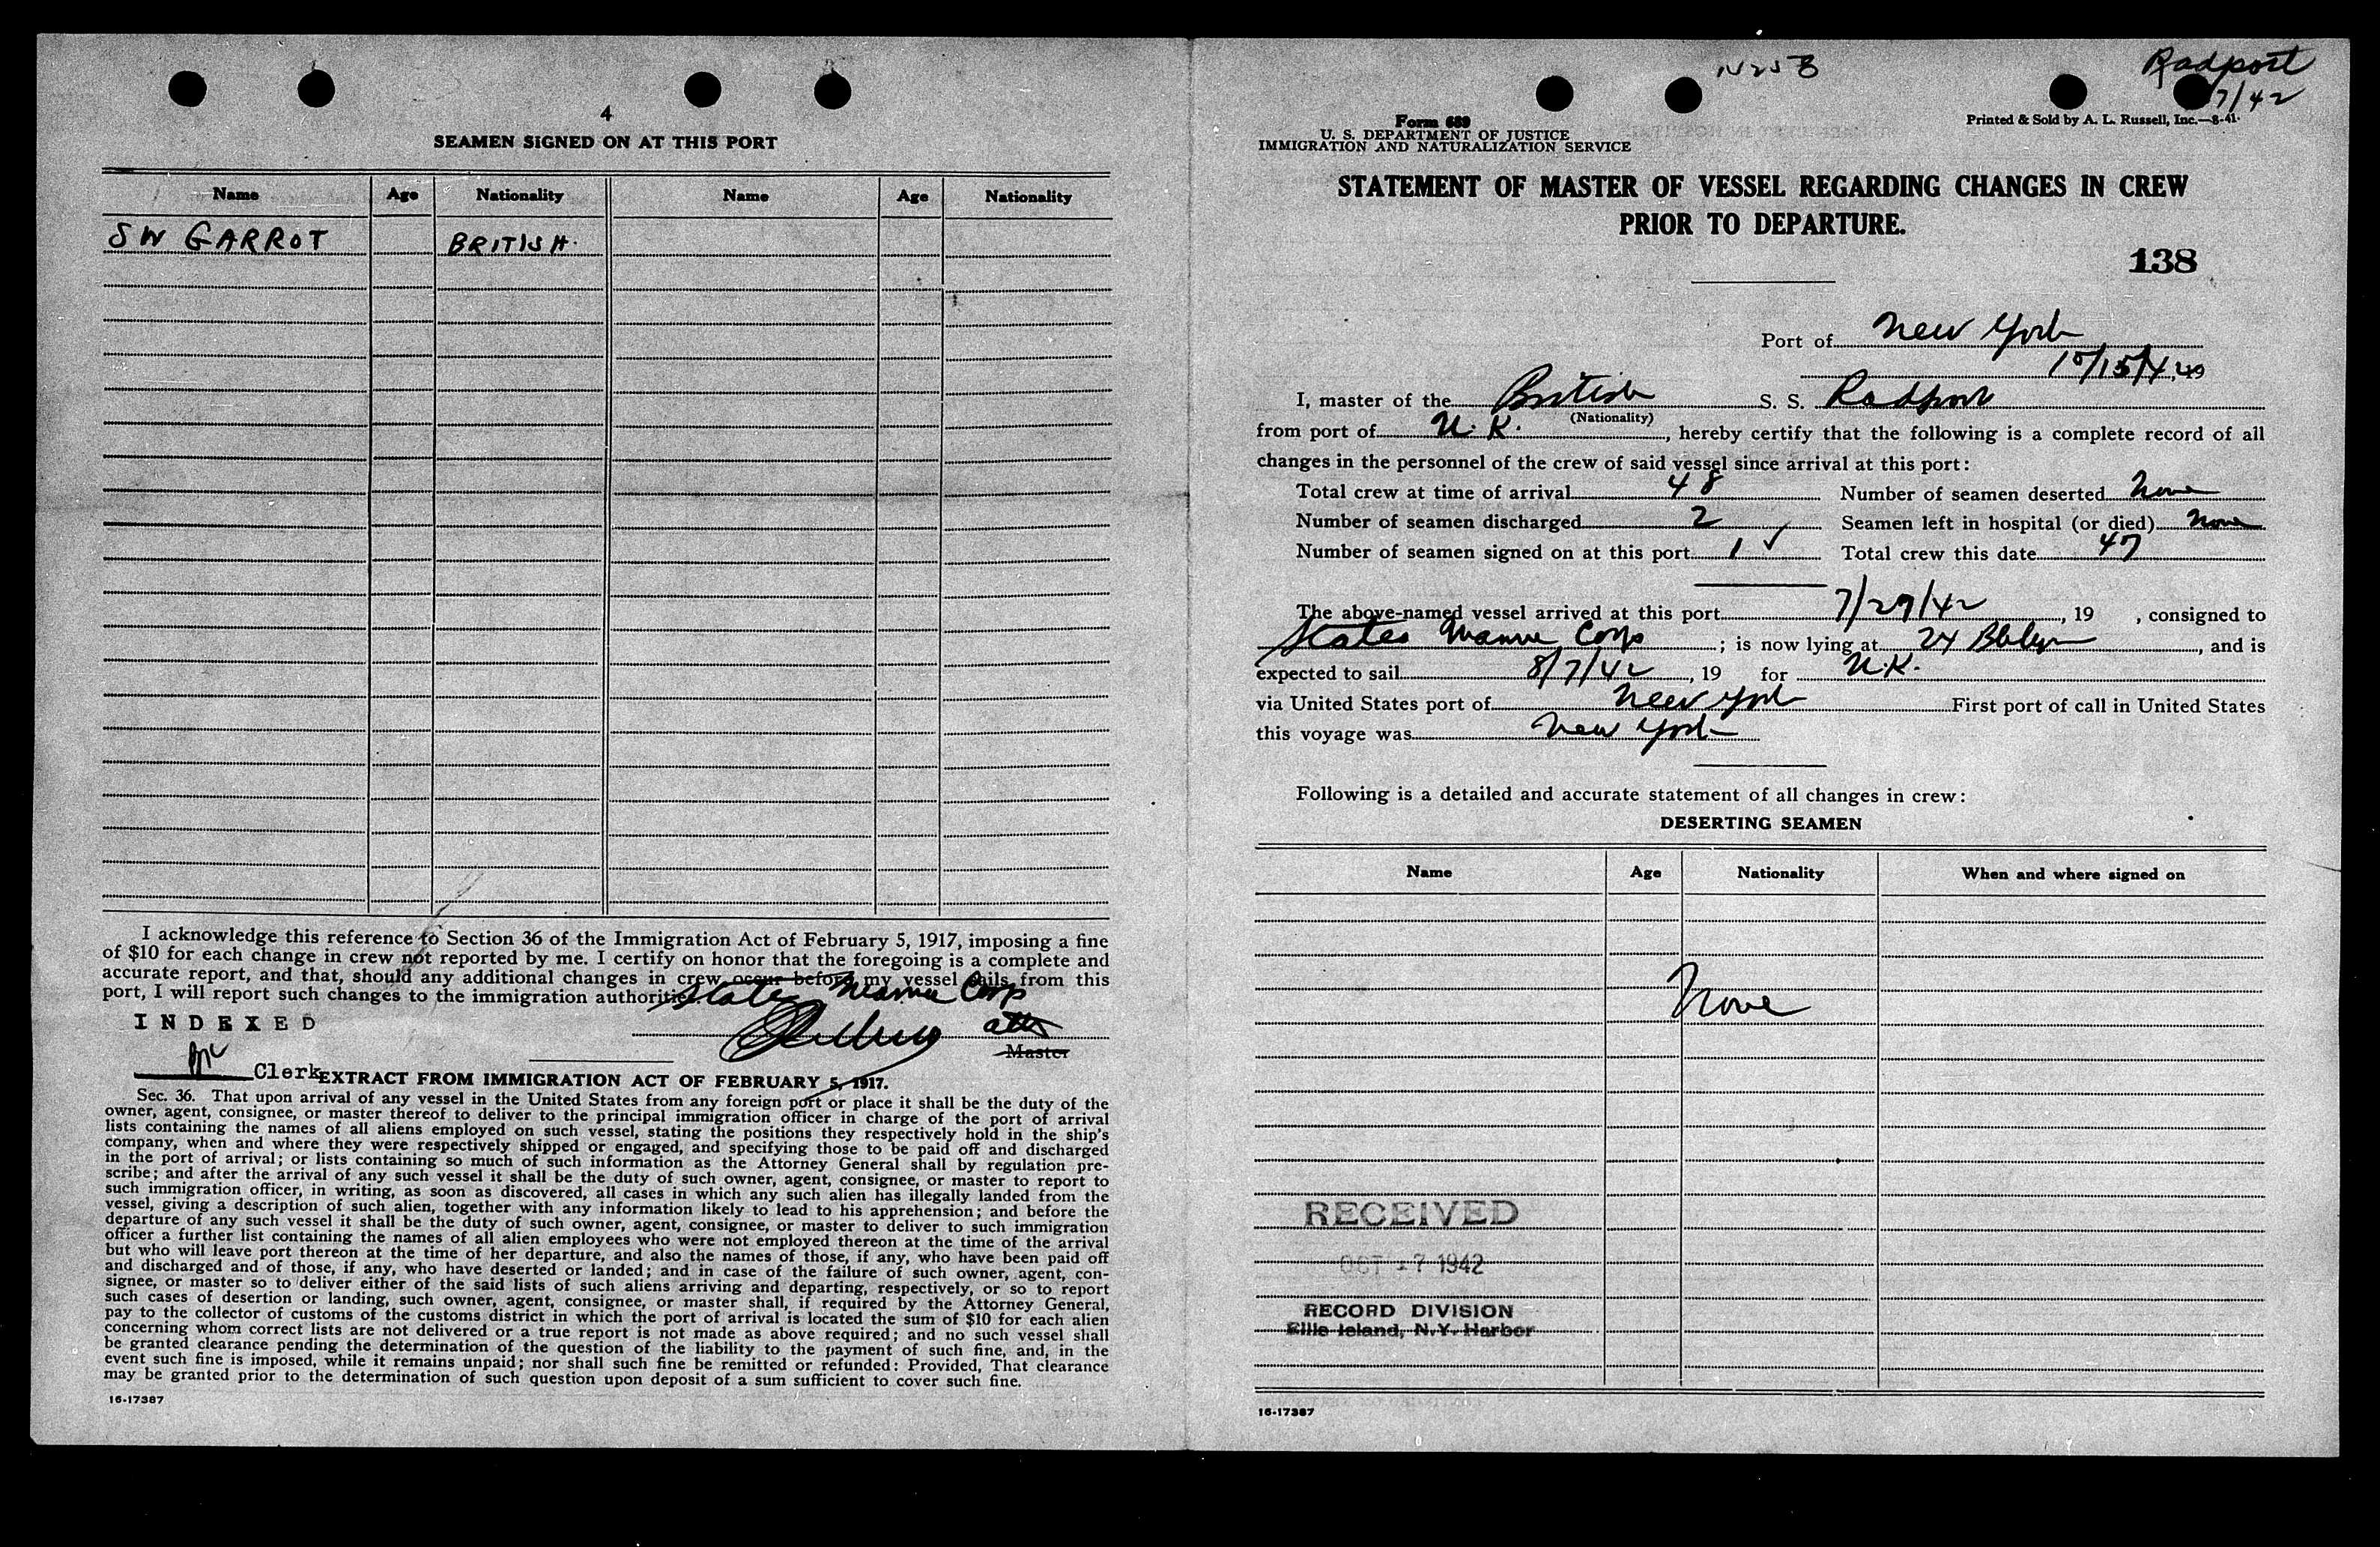 4
SEAMEN SIGNED ON AT THIS PORT
Name Age Nationality Name Age Nationality
S W GARROT BRITISH.
I acknowledge this reference to Section 36 of the Immigration Act of February 5, 1917, imposing a fine
of $10 for each change in crew not reported by me. I certify on honor that the foregoing is a complete and
accurate report, and that, should any additional changes in crew occur before my vessel sails from this
port, I will report such changes to the immigration authorities.
States Marine Corp
INDEXED
atty
Master
Clerk
EXTRACT FROM IMMIGRATION ACT OF FEBRUARY 5, 1917.
Sec. 36. That upon arrival of any vessel in the United States from any foreign port or place it shall be the duty of the
owner, agent, consignee, or master thereof to deliver to the principal immigration officer in charge of the port of arrival
lists containing the names of all aliens employed on such vessel, stating the positions they respectively hold in the ship's
company, when and where they were respectively shipped or engaged, and specifying those to be paid off and discharged
in the port of arrival; or lists containing so much of such information as the Attorney General shall by regulation pre-
scribe; and after the arrival of any such vessel it shall be the duty of such owner, agent, consignee, or master to report to
such immigration officer, in writing, as soon as discovered, all cases in which any such alien has illegally landed from the
vessel, giving a description of such alien, together with any information likely to lead to his apprehension; and before the
departure of any such vessel it shall be the duty of such owner, agent, consignee, or master to deliver to such immigration
officer a further list containing the names of all alien employees who were not employed thereon at the time of the arrival
but who will leave port thereon at the time of her departure, and also the names of those, if any, who have been paid off
and discharged and of those, if any, who have deserted or landed; and in case of the failure of such owner, agent, con-
signee, or master so to deliver either of the said lists of such aliens arriving and departing, respectively, or so to report
such cases of desertion or landing, such owner, agent, consignee, or master shall, if required by the Attorney General,
pay to the collector of customs of the customs district in which the port of arrival is located the sum of $10 for each alien
concerning whom correct lists are not delivered or a true report is not made as above required; and no such vessel shall
be granted clearance pending the determination of the question of the liability to the payment of such fine, and, in the
event such fine is imposed, while it remains unpaid; nor shall such fine be remitted or refunded: Provided, That clearance
may be granted prior to the determination of such question upon deposit of a sum sufficient to cover such fine.
16-17387
Radport
7/42
Form 689
U. S. DEPARTMENT OF JUSTICE
IMMIGRATION AND NATURALIZATION SERVICE
Printed & Sold by A. L. Russell, Inc.—8-41
STATEMENT OF MASTER OF VESSEL REGARDING CHANGES IN CREW
PRIOR TO DEPARTURE.
138
Port of New York
I, master of the British S. S. Radport
(Nationality)
from port of U. K. , hereby certify that the following is a complete record of all
changes in the personnel of the crew of said vessel since arrival at this port:
Total crew at time of arrival 48 Number of seamen deserted None
Number of seamen discharged 2 Seamen left in hospital (or died) None
Number of seamen signed on at this port 1 ✓ Total crew this date 47
The above-named vessel arrived at this port 7/29/42 , 19 , consigned to
States Marine Corp ; is now lying at 24 Bklyn , and is
expected to sail 8/7/42 , 19 for U.K.
via United States port of New York First port of call in United States
this voyage was New York
Following is a detailed and accurate statement of all changes in crew:
DESERTING SEAMEN
Name Age Nationality When and where signed on
None
RECEIVED
OCT 17 1942
RECORD DIVISION
Ellis Island, N.Y. Harbor
16-17387